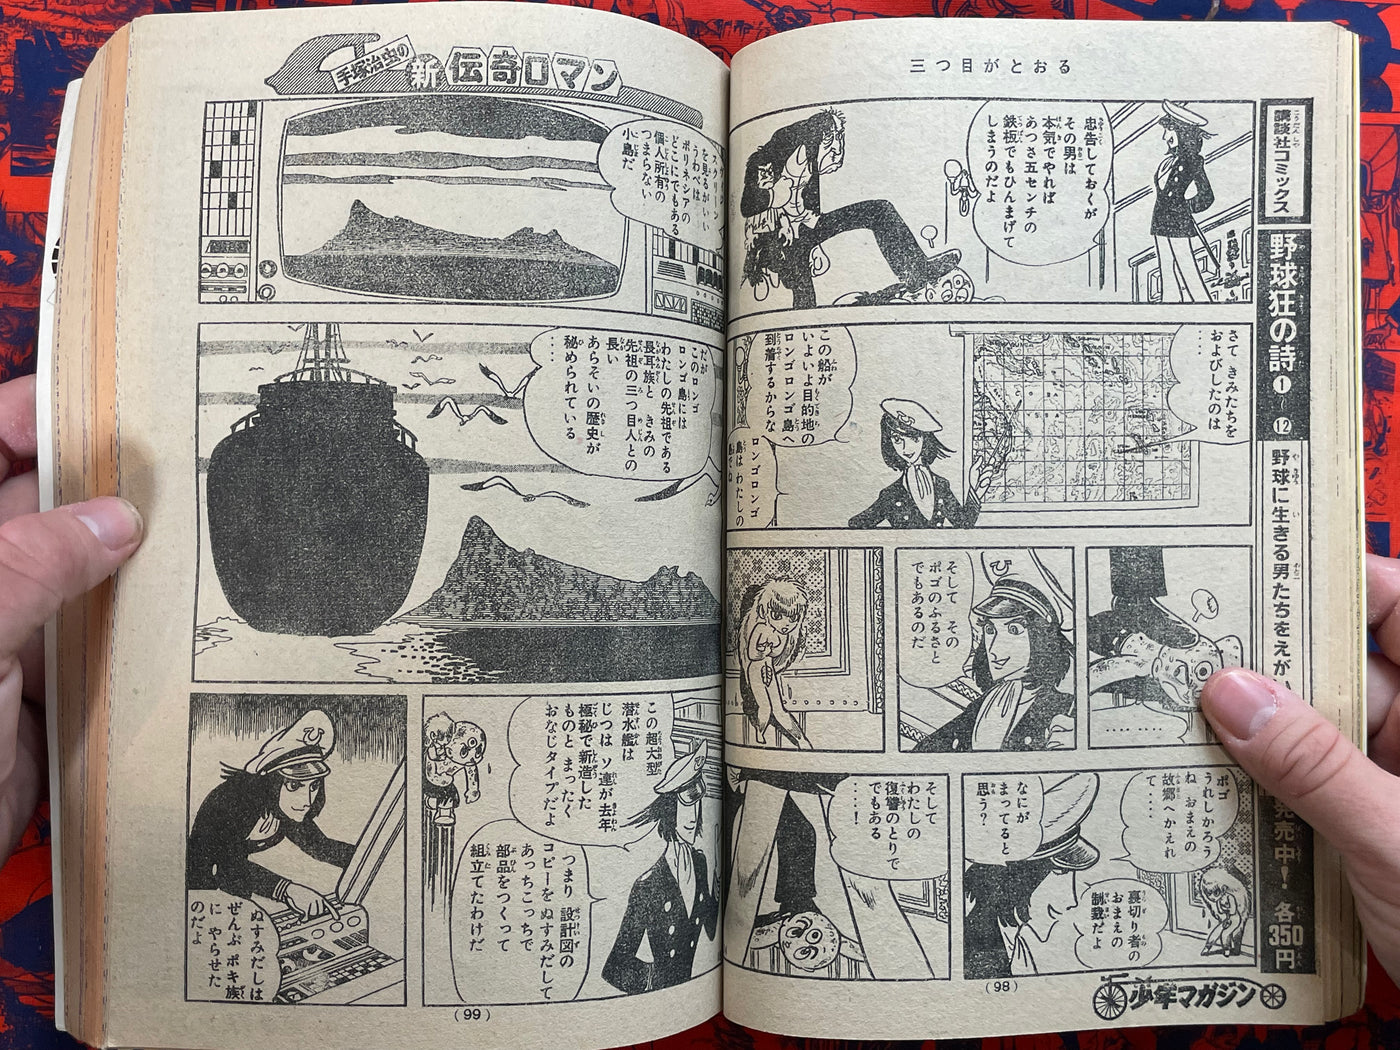 三つ目がとおる
忠告しておくが
その男は
本気でやれば
あつさ五センチの
鉄板でもひんまげて
しまうのだよ
さて きみたちを
およびしたのは
‥‥
この船が
いよいよ目的地の
ロンゴロンゴ島へ
到着するからな
ロンゴロンゴ
島は わたしの
‥‥‥‥
そして その
ポゴのふるさと
でもあるのだ
ポゴ
うれしかろう
ね おまえの
故郷へかえれ
て‥‥
なにが
まってると
思う?
裏切り者の
おまえの
制裁だよ
そして
わたしの
復讐のとりで
でもある
‥‥!
(98)
講談社コミックス
野球狂の詩
①〜⑫
野球に生きる男たちをえが
発売中!
各350円
少年マガジン
手塚治虫の
新伝奇ロマン
スクリーン
を見るがいい
うわべは
ポリネシアの
どこにでもある
個人所有の
つまらない
小島だ
だが
このロンゴ
ロンゴ島には
わたしの先祖である
長耳族と きみの
先祖の三つ目人との
長い
あらそいの歴史が
秘められている
‥‥
この超大型
潜水艦は
じつは ソ連が去年
極秘で新造した
ものと まったく
おなじタイプだよ
つまり 設計図の
コピーを ぬすみだして
あっちこっちで
部品をつくって
組立てたわけだ
ぬすみだしは
ぜんぶ ポキ族
に やらせた
のだよ
(99)